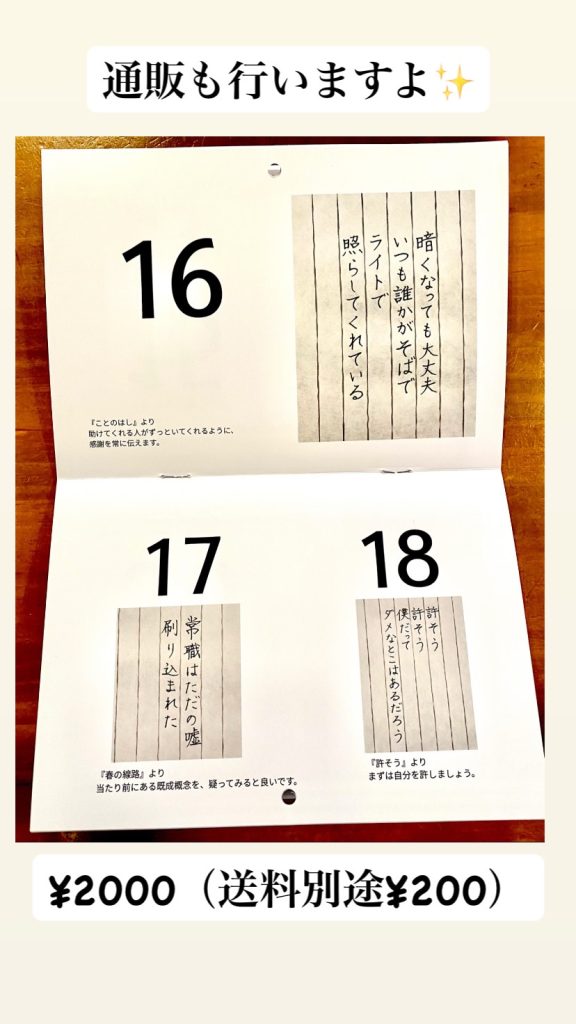 通販も行いますよ✨
16
暗くなっても大丈夫
いつも誰かがそばで
ライトで
照らしてくれている
『ことのはし』より
助けてくれる人がずっといてくれるように、
感謝を常に伝えます。
17
常職はただの嘘
刷り込まれた
『春の線路』より
当たり前にある既成概念を、疑ってみると良いです。
18
許そう
許そう
僕だって
ダメなとこはあるだろう
『許そう』より
まずは自分を許しましょう。
¥2000（送料別途¥200）